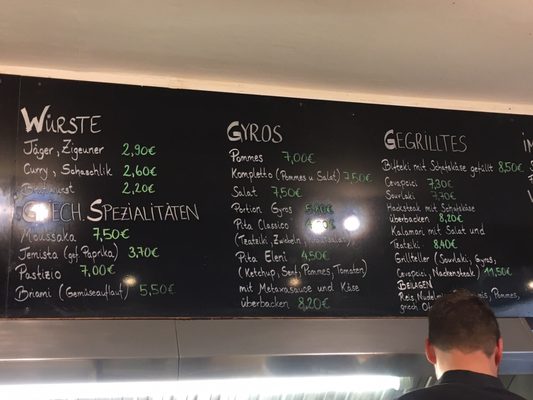 WÜRSTE
Jäger, Zigeuner 2,90€
Curry, Schaschlik 2,60€
Bratwurst 2,20€
GRIECH. SPEZIALITÄTEN
Moussaka 7,50€
Jemista (gef. Paprika) 3,70€
Pastizio 7,00€
Briami (Gemüseauflauf) 5,50€
GYROS
Pommes 7,00€
Kompletto (Pommes u Salat) 7,50€
Salat 7,50€
Portion Gyros
Pita Classico
(Tzatziki, Zwiebeln
Pita Eleni 4,50€
(Ketchup, Senf, Pommes, Tomaten)
mit Metaxasauce und Käse
überbacken 8,20€
GEGRILLTES
Bifteki mit Schafskäse gefüllt 8,50€
Cevapcici 7,30€
Souvlaki 7,70€
Hacksteak mit Schafskäse
überbacken 8,20€
Kalamari mit Salat und
Tzatziki 8,40€
Grillteller (Souvlaki, Gyros,
Cevapcici, Nackensteak) 11,50€
BEILAGEN
Reis, Nudeln Pommes,